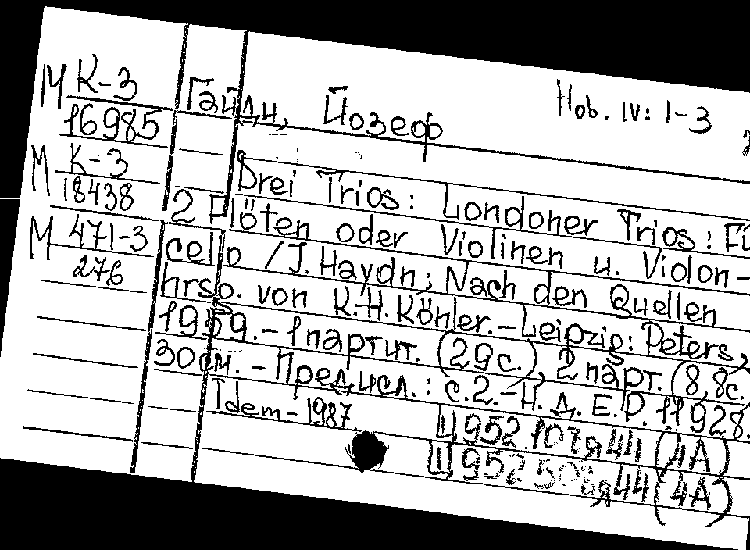 М К-3
16985
М К-3
18438
М 471-3
276
Гайдн, Йозеф
Hob. IV: 1-3
Drei Trios: Londoner Trios: Fü
2 Flöten oder Violinen u. Violon-
cello / J. Haydn; Nach den Quellen
hrsg. von K.H. Köhler. - Leipzig: Peters,
1959. - 1 партит. (29с.), 2 парт. (8,8с.
30см. - Предисл.: с.2. - Н.д. E.P. 11928.
Idem - 1987
Ц 952 107я44 (4А)
Ц 952 508я44 (4А)